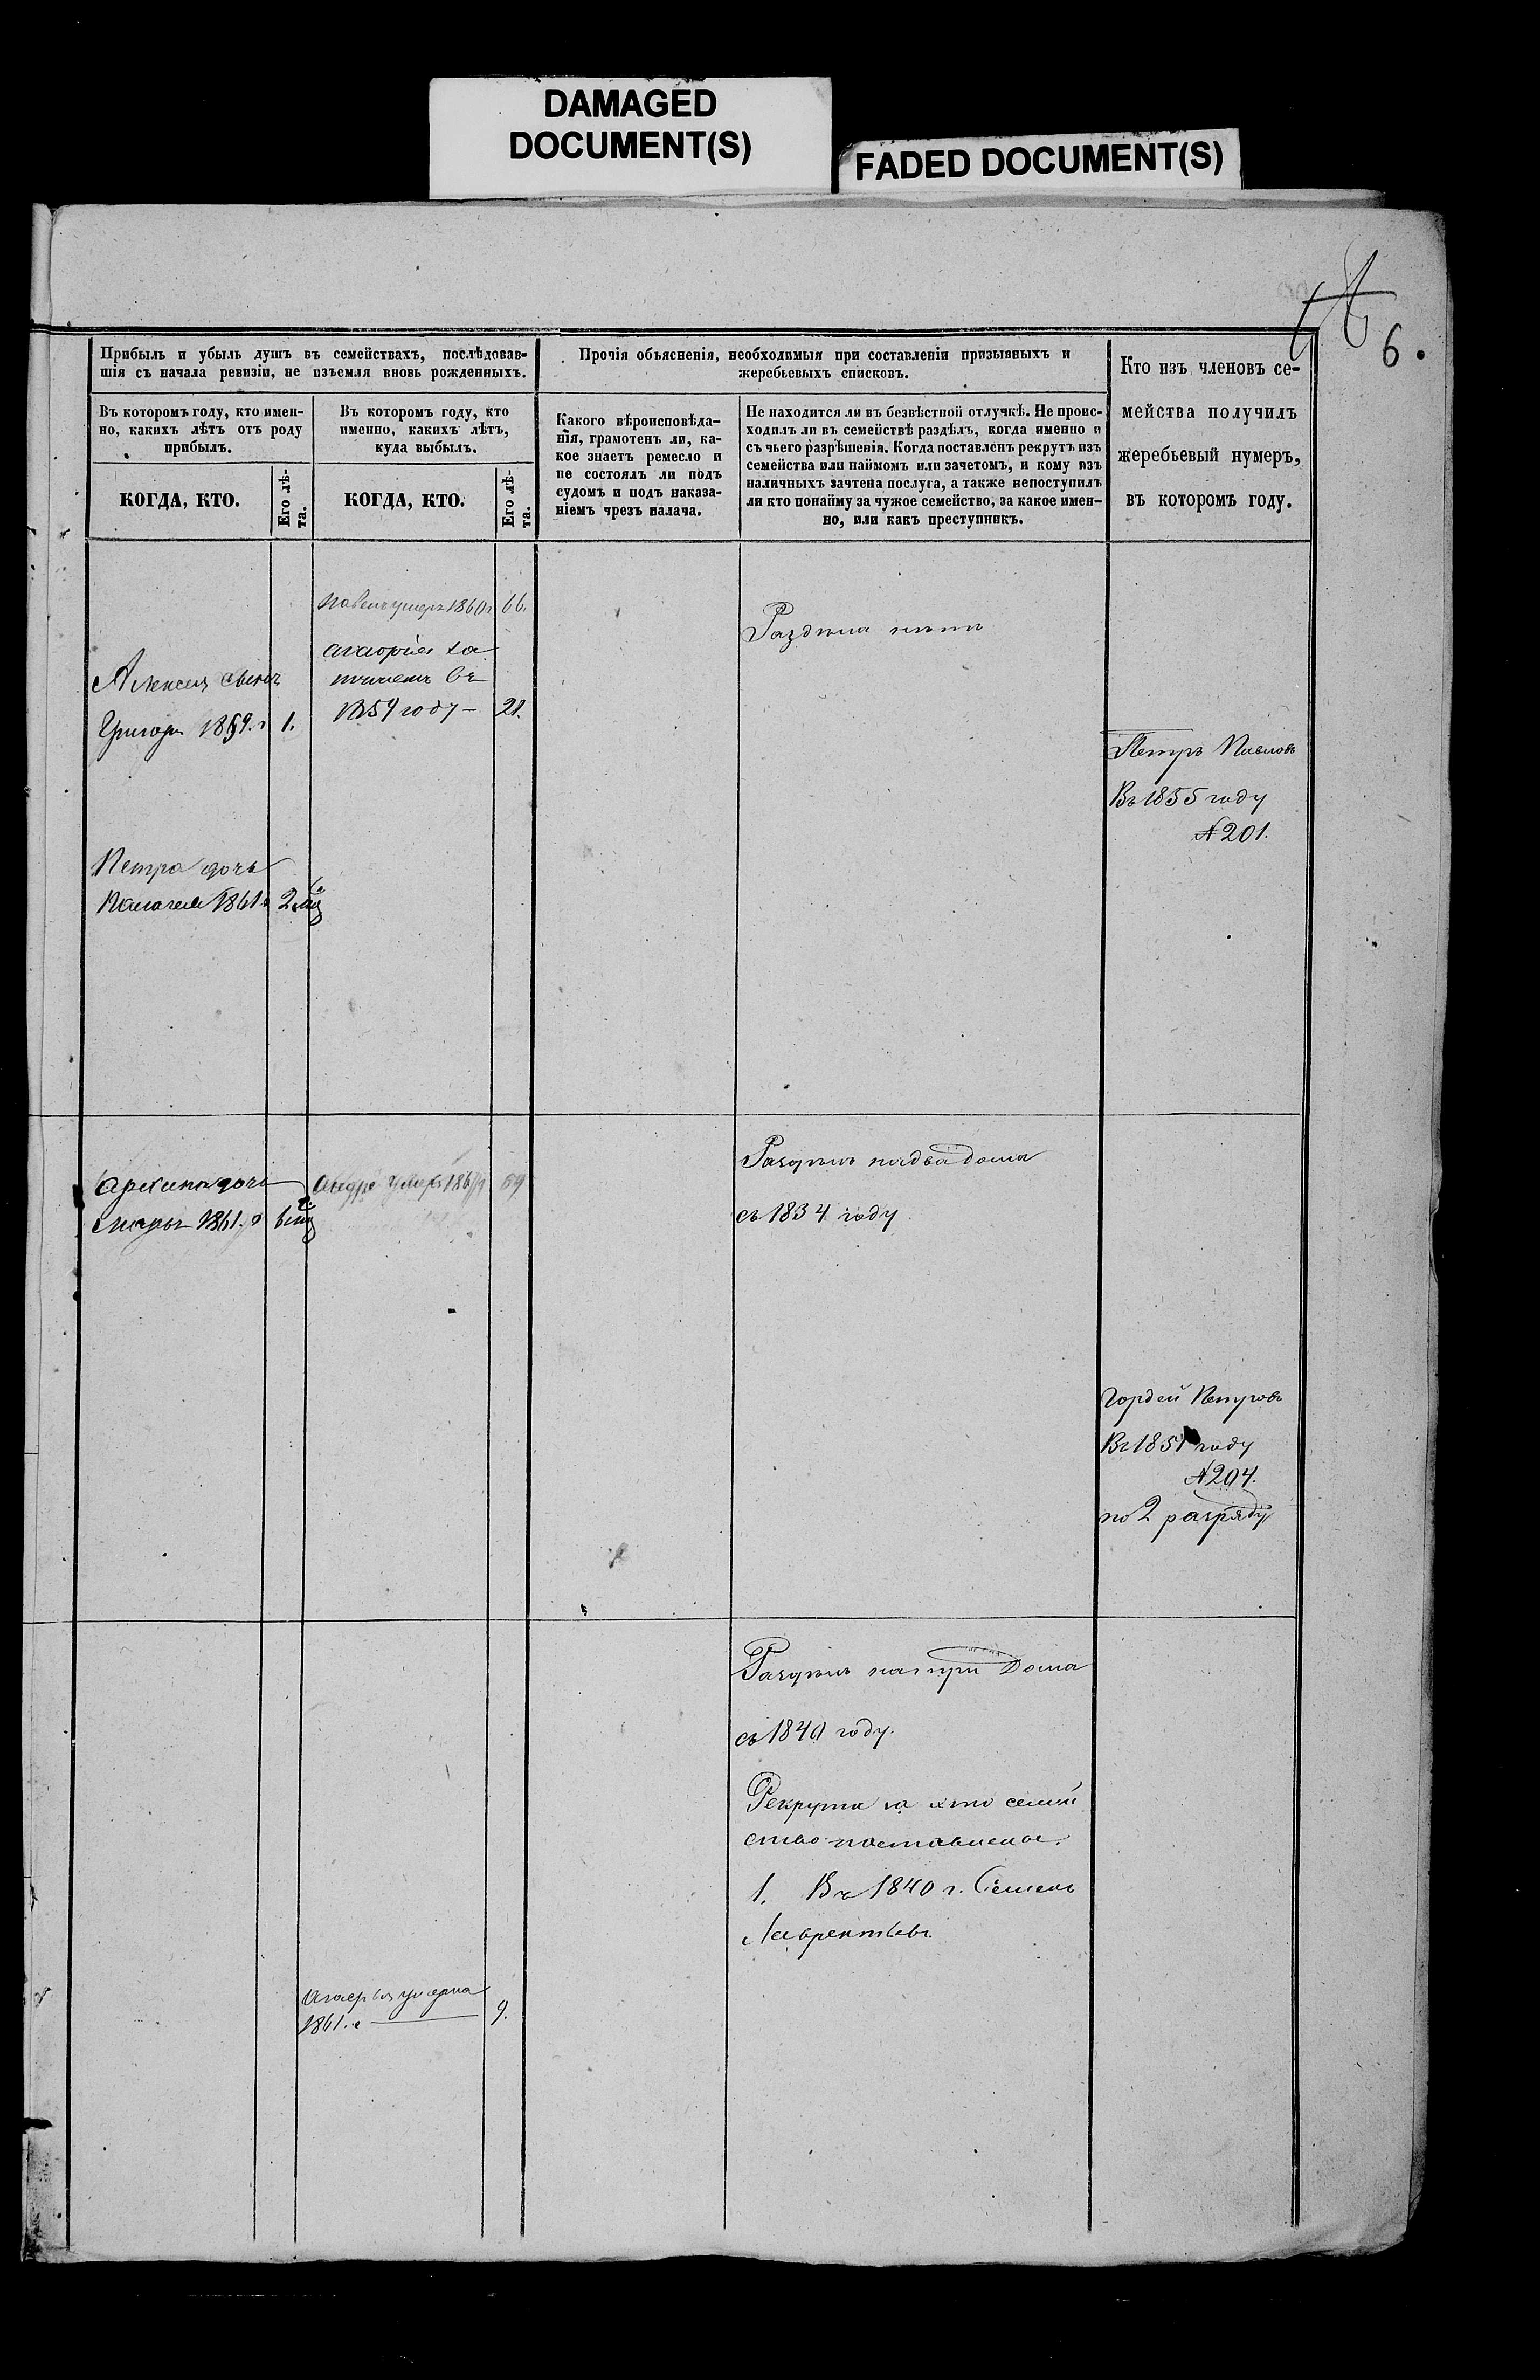 DAMAGED
DOCUMENT(S)
FADED DOCUMENT(S)
6.
Прибыль и убыль душъ въ семействахъ, послѣдовав-
шія съ начала ревизіи, не изъемля вновь рожденныхъ.
Прочія объясненія, необходимыя при составленіи призывныхъ и
жеребьевыхъ списковъ.
Кто изъ членовъ се-
мейства получилъ
жеребьевый нумеръ,
въ которомъ году.
Въ которомъ году, кто имен-
но, какихъ лѣтъ отъ роду
прибылъ.
Въ которомъ году, кто
именно, какихъ лѣтъ,
куда выбылъ.
Какого вѣроисповѣда-
нія, грамотенъ ли, ка-
кое знаетъ ремесло и
не состоялъ ли подъ
судомъ и подъ наказа-
ніемъ чрезъ палача.
Не находится ли въ безвѣстной отлучкѣ. Не проис-
ходилъ ли въ семействѣ раздѣлъ, когда именно и
съ чьего разрѣшенія. Когда поставленъ рекрутъ изъ
семейства или наймомъ или зачетомъ, и кому изъ
наличныхъ зачтена послуга, а также непоступилъ
ли кто понайму за чужое семейство, за какое имен-
но, или какъ преступникъ.
КОГДА, КТО.
Его лѣ-
та.
КОГДА, КТО.
Его лѣ-
та.
Павелъ умеръ 1860 г 66.
Раздѣла нѣтъ
Алексея сынъ
Григори 1859. г 1.
въ
1859 году - 21.
Петръ Павловъ
Въ 1855 году
№ 201.
Петра дочь
1861 г 2 мц
Раздѣлъ на два дома
съ 1834 году
Архипа дочь
Марья 1861. г 6 мц
Андре умеръ 69
Гордей Петровъ
Въ 1851 году
№ 204.
по 2 разряду
Раздѣлъ на три дома
съ 1840 году.
Рекрута за это семей
ство поставлены.
1. Въ 1840 г. Семенъ
Лаврентьевъ.
умерла
1861. г 9.